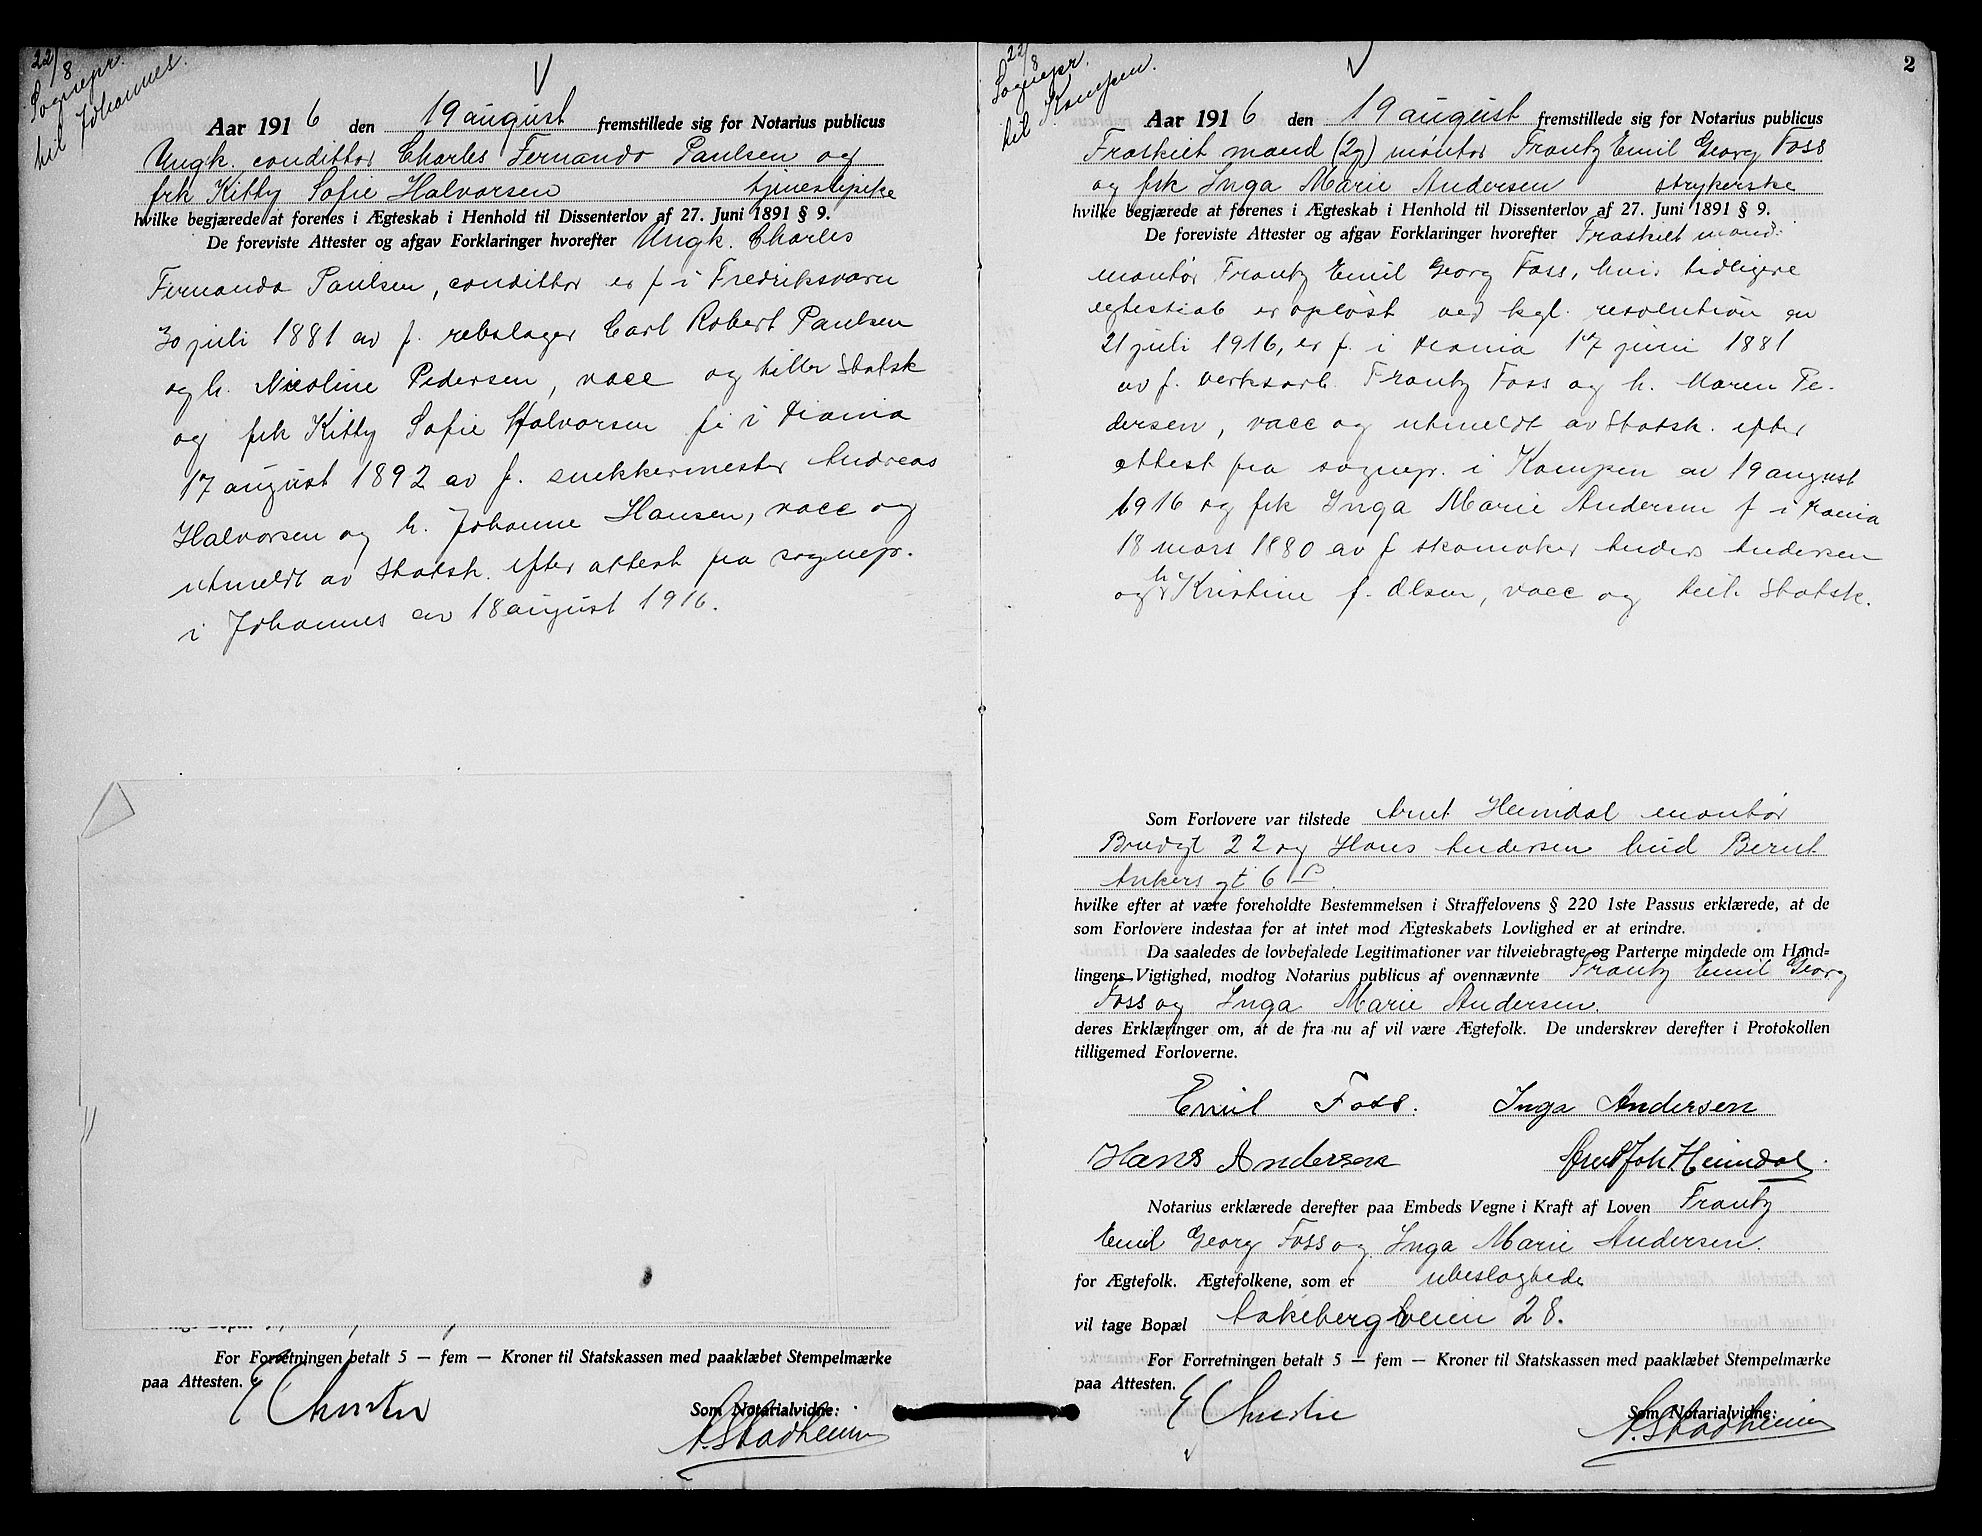 22/8
Sognepr.
til Johannes.
Aar 1916 den 19 august fremstillede sig for Notarius publicus
Ungk. condittor Charles Fernando Paulsen og
frk Kitty Sofie Halvorsen tjenestepike
hvilke begjærede at forenes i Ægteskab i Henhold til Dissenterlov af 27. Juni 1891 § 9.
De foreviste Attester og afgav Forklaringer hvorefter Ungk. Charles
Fernando Paulsen, condittor er f i Fredriksværn
30 juli 1881 av f. rebslager Carl Robert Paulsen
og h. Nicoline Pedersen, vacc og tilhr Statsk
og frk Kitty Sofie Halvorsen f. i Krania
17 august 1892 av f. snekkermester Andreas
Halvorsen og h. Johanne Hansen, vacc og
utmeldt av Statsk. efter attest fra sognepr.
i Johannes av 18 august 1916.
For Forretningen betalt 5 — fem — Kroner til Statskassen med paaklæbet Stempelmærke
paa Attesten.
E Christie
Som Notarialvidne:
A. Stadheim
2
22/8
Sognepr.
til Kampen.
Aar 1916 den 19 august fremstillede sig for Notarius publicus
Fraskilt mand (2g) montør Frantz Emil Georg Foss
og frk Inga Marie Andersen strykerske
hvilke begjærede at forenes i Ægteskab i Henhold til Dissenterlov af 27. Juni 1891 § 9.
De foreviste Attester og afgav Forklaringer hvorefter Fraskilt mand
montør Frantz Emil Georg Foss, hvis tidligere
egteskab er opløst ved kgl. resolution av
21 juli 1916, er f. i Krania 17 juni 1881
av f. verksarb. Frantz Foss og h. Maren Pe-
dersen, vacc og utmeldt av Statsk. efter
attest fra sognepr. i Kampen av 19 august
1916 og frk Inga Marie Andersen f i Krania
18 mars 1880 av f skomaker Anders Andersen
og h Kristine f. Olsen, vacc og tilh. Statsk.
Som Forlovere var tilstede Arnt Heimdal montør
Brudgt 22 og Hans Andersen bud Bernt
Ankers gt 6 B.
hvilke efter at være foreholdte Bestemmelsen i Straffelovens § 220 1ste Passus erklærede, at de
som Forlovere indestaa for at intet mod Ægteskabets Lovlighed er at erindre.
Da saaledes de lovbefalede Legitimationer var tilveiebragte og Parterne mindede om Hand-
lingens Vigtighed, modtog Notarius publicus af ovennævnte Frantz Emil Georg
Foss og Inga Marie Andersen.
deres Erklæringer om, at de fra nu af vil være Ægtefolk. De underskrev derefter i Protokollen
tilligemed Forloverne.
Emil Foss. Inga Andersen
Hans Andersen Arnt Joh Heimdal.
Notarius erklærede derefter paa Embeds Vegne i Kraft af Loven Frantz
Emil Georg Foss og Inga Marie Andersen.
for Ægtefolk. Ægtefolkene, som er ubeslegtede
vil tage Bopæl Aakebergveien 28.
For Forretningen betalt 5 — fem — Kroner til Statskassen med paaklæbet Stempelmærke
paa Attesten.
E Christie
Som Notarialvidne:
A. Stadheim